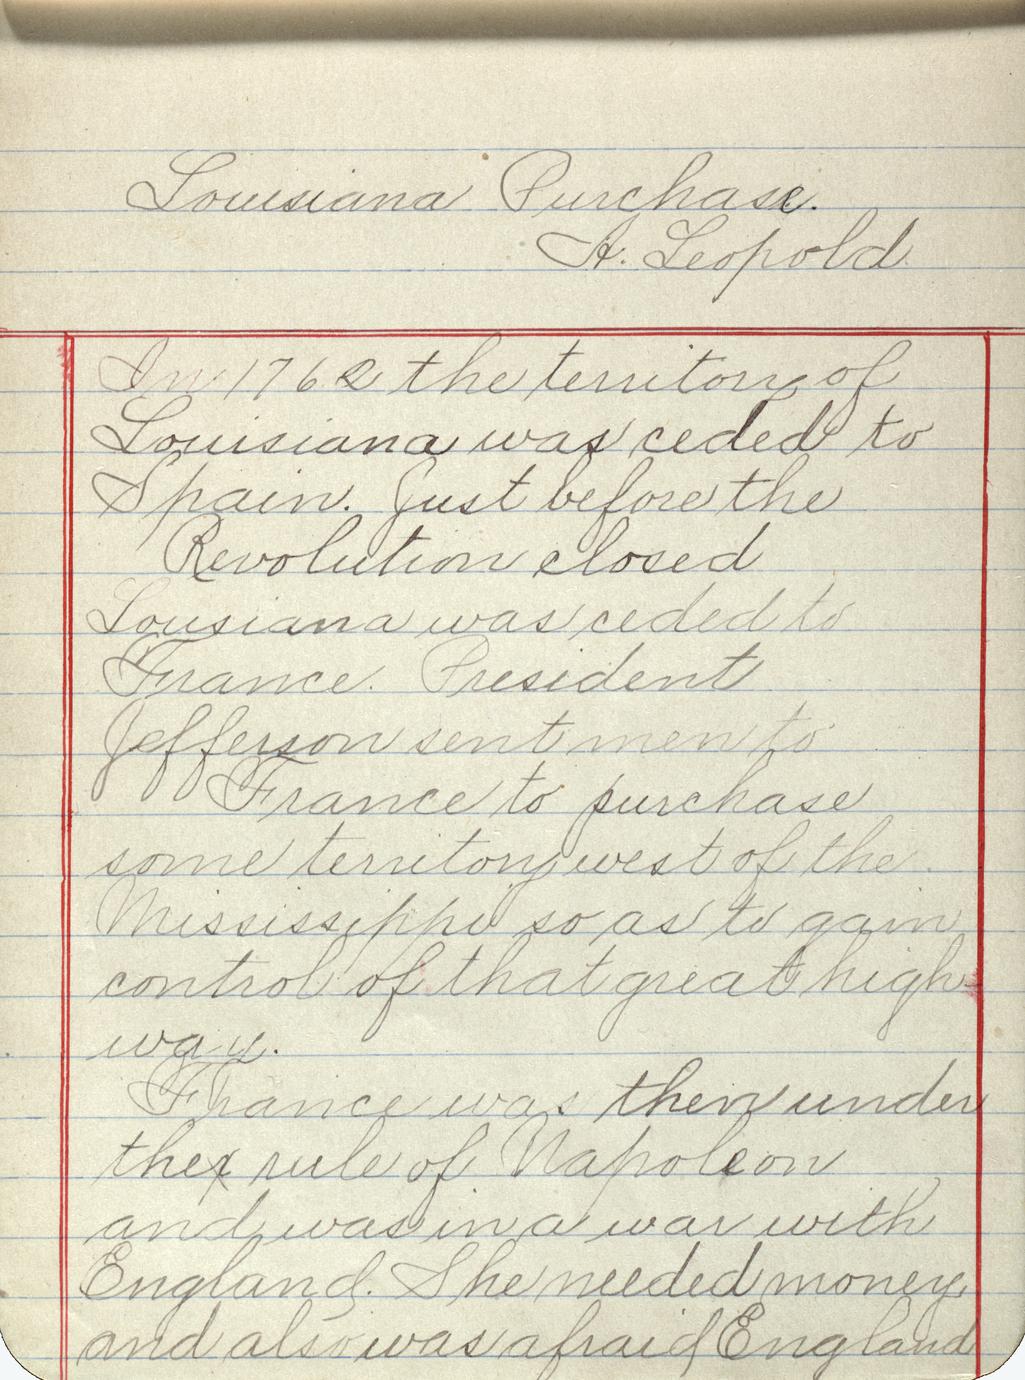 Louisiana Purchase.
A. Leopold
In 1762 the territory of
Louisiana was ceded to
Spain. Just before the
Revolution closed
Lousiana was ceded to
France. President
Jefferson sent men to
France to purchase
some territory west of the
Mississippi so as to gain
control of that great high-
way.
France was then under
the rule of Napoleon
and was in a war with
England. She needed money,
and also was afraid England